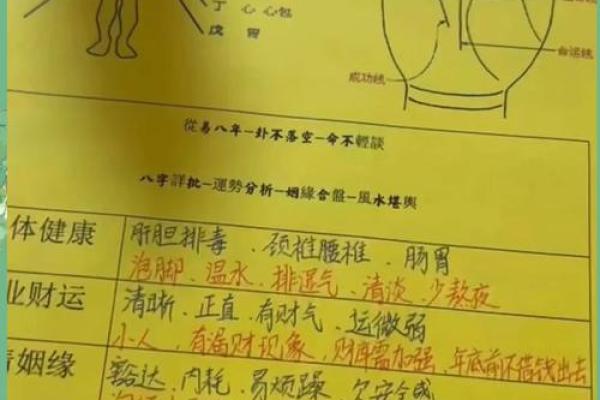 丁 心 心包
戊 胃
命运线
成功线
從易八年-卦不落空-命不輕談
八字詳批-運勢分析-姻緣合盤-風水堪輿
体健康 肝胆排毒、颈椎腰椎、肠胃
泡脚、温水、排湿气、清淡、少熬夜
业财运 清晰、正直、有财气、运微弱
小人、有漏财现象、财库需加强、年底前不借钱出去
姻缘 豁达、内耗、易烦躁、欠安全感